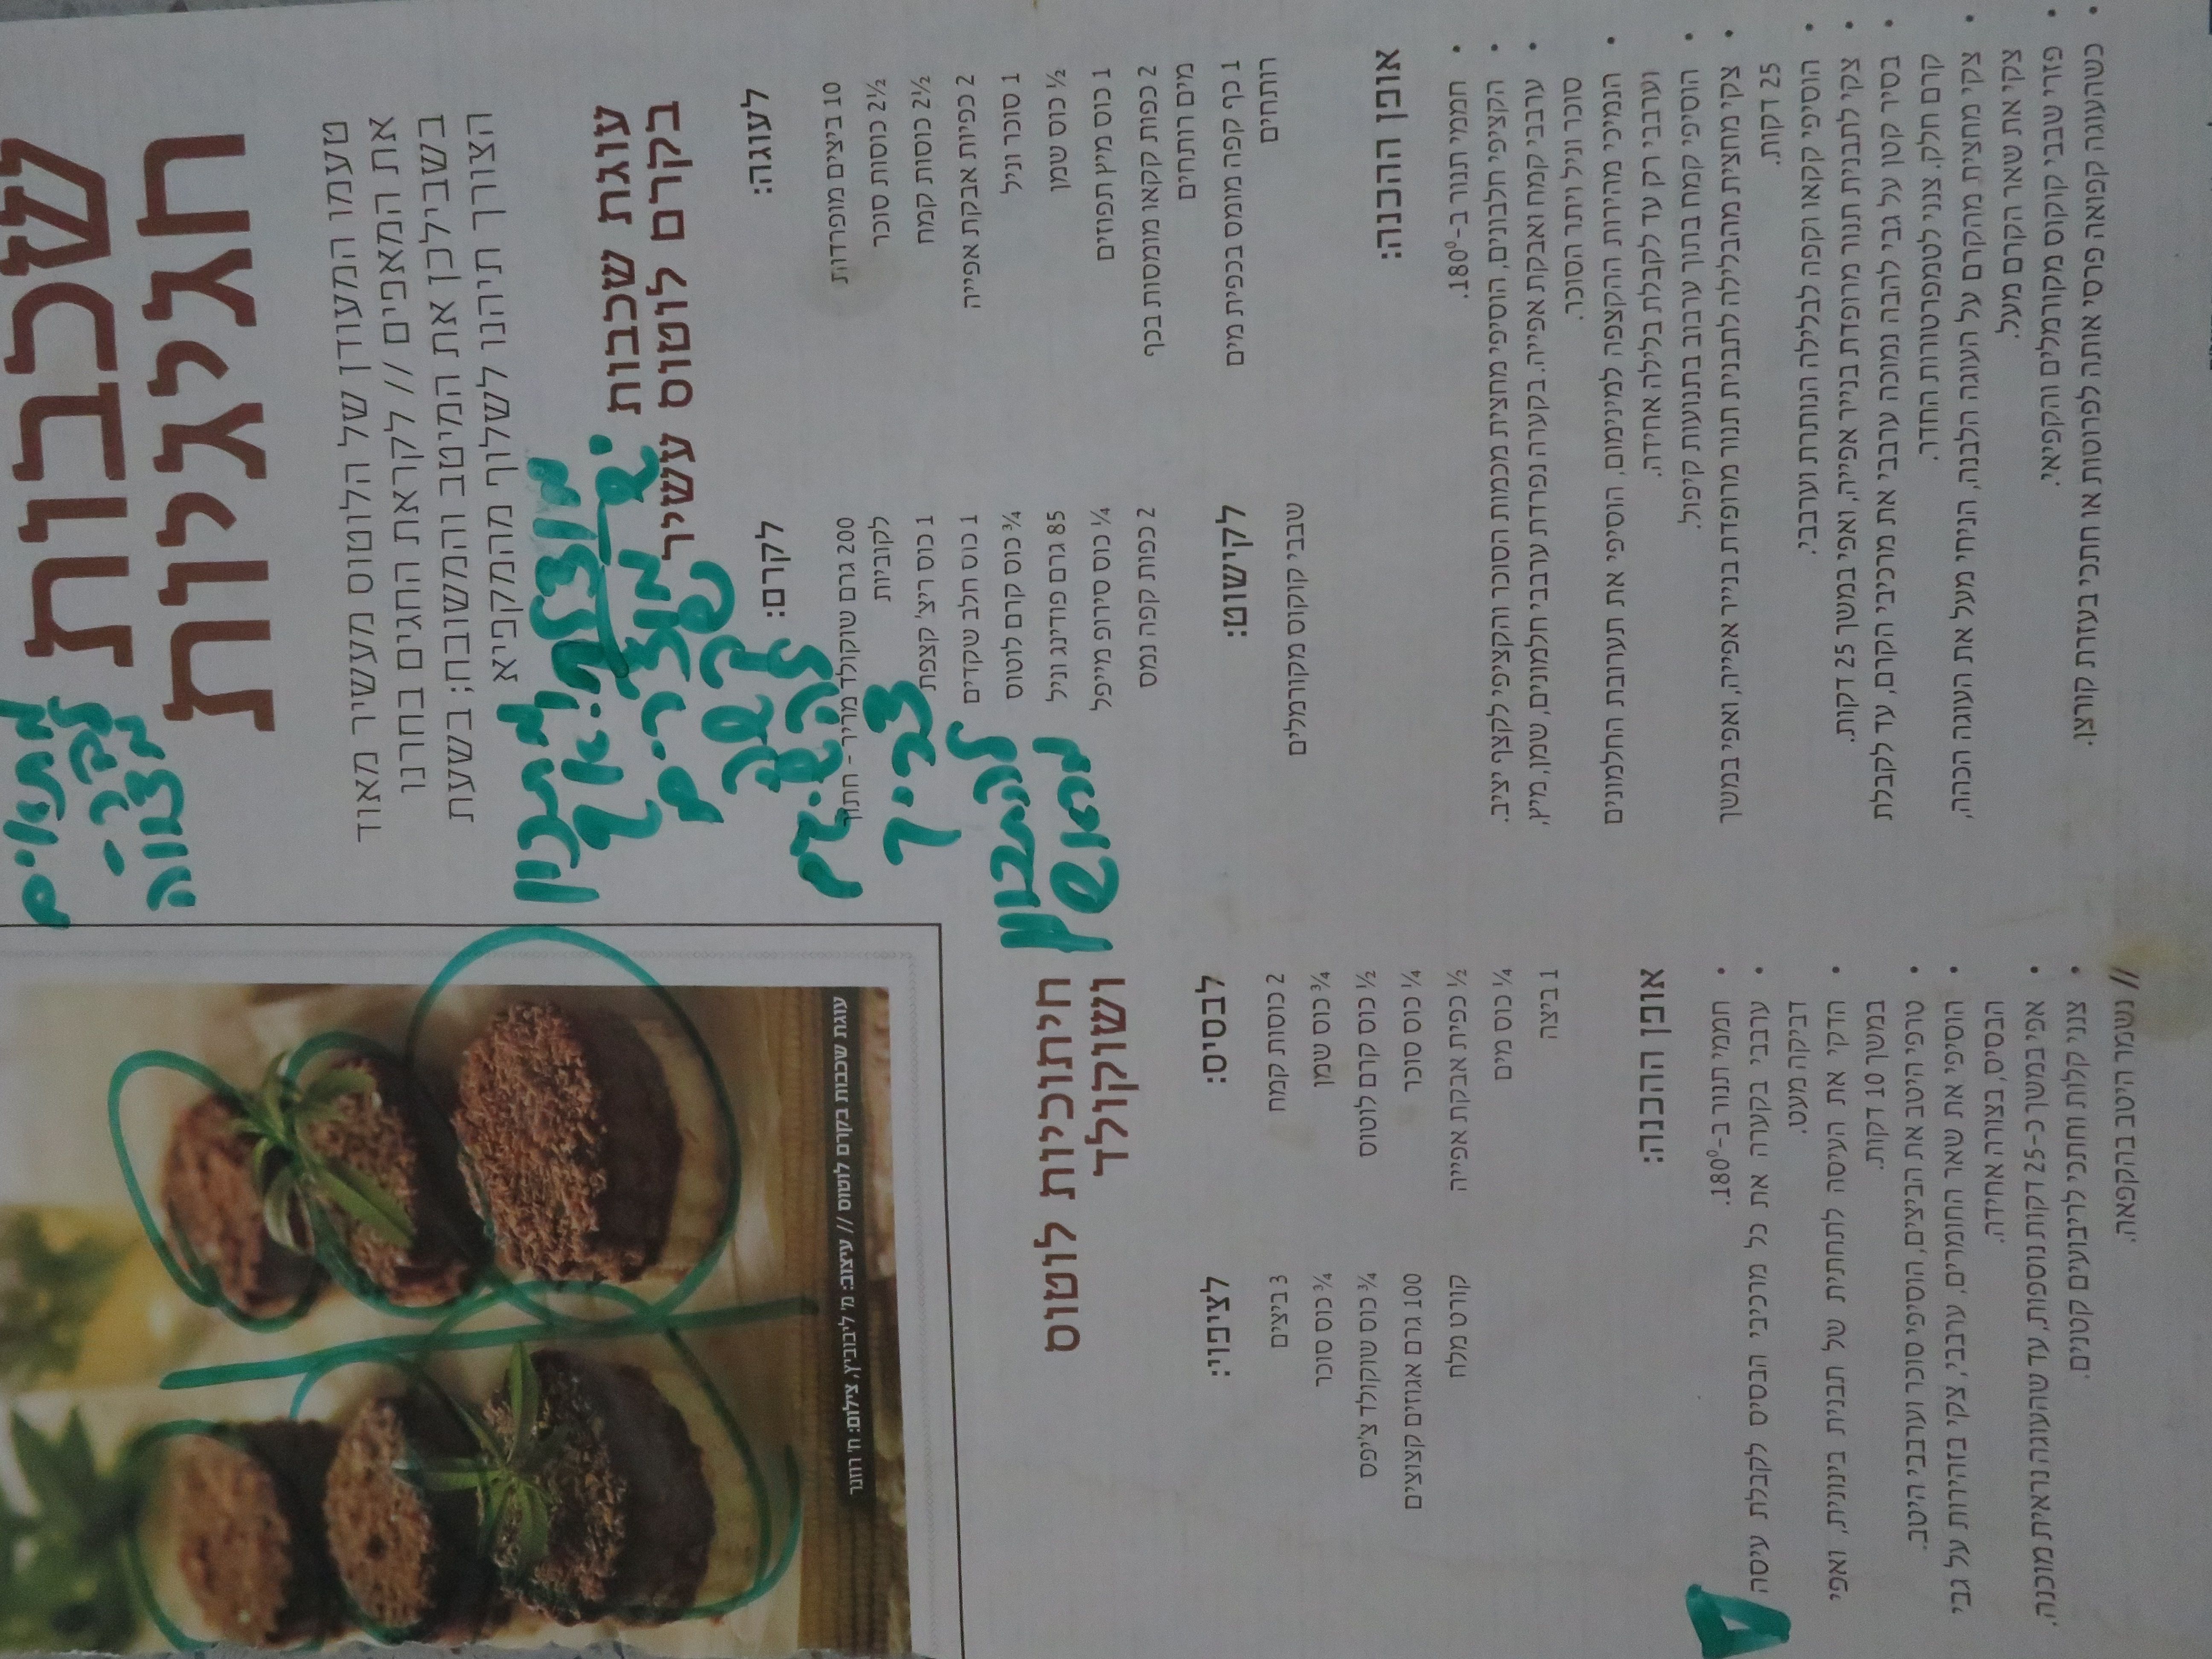 שכבות
חגיגיות
טעמו המעודן של הלוטוס מעשיר מאוד
את המאפים // לקראת החגים בחרנו
בשבילכן את המיטב והמשובח; בשעת
הצורך תיהנו לשלוף מהמקפיא
עוגת שכבות
בקרם לוטוס עשיר
לעוגה:
10 ביצים מופרדות
2½ כוסות סוכר
2½ כוסות קמח
2 כפיות אבקת אפייה
1 סוכר וניל
½ כוס שמן
1 כוס מיץ תפוזים
2 כפות קקאו מומסות בכף
מים רותחים
1 כף קפה מומס בכפית מים
רותחים
לקרם:
200 גרם שוקולד מריר - חתוך
לקוביות
1 כוס ריץ' קצפת
1 כוס חלב שקדים
¾ כוס קרם לוטוס
85 גרם פודינג וניל
¼ כוס סירופ מייפל
2 כפות קפה נמס
לקישוט:
שבבי קוקוס מקורמלים
אופן ההכנה:
• חממי תנור ב-180°.
• הקציפי חלבונים, הוסיפי מחצית מכמות הסוכר והקציפי לקצף יציב.
• ערבבי קמח ואבקת אפייה. בקערה נפרדת ערבבי חלמונים, שמן, מיץ,
סוכר וניל ויתר הסוכר.
• הנמיכי מהירות ההקצפה למינימום, הוסיפי את תערובת החלמונים
וערבבי רק עד לקבלת בלילה אחידה.
• הוסיפי קמח בתוך ערבוב בתנועות קיפול.
• צקי מחצית מהבלילה לתבנית תנור מרופדת בנייר אפייה, ואפי במשך
25 דקות.
• הוסיפי קקאו וקפה לבלילה הנותרת וערבבי.
• צקי לתבנית תנור מרופדת בנייר אפייה, ואפי במשך 25 דקות.
• בסיר קטן על גבי להבה נמוכה ערבבי את מרכיבי הקרם, עד לקבלת
קרם חלק. צנני לטמפרטורת החדר.
• צקי מחצית מהקרם על העוגה הלבנה, הניחי מעל את העוגה הכהה,
צקי את שאר הקרם מעל.
• פזרי שבבי קוקוס מקורמלים והקפיאי.
• כשהעוגה קפואה פרסי אותה לפרוסות או חתכי בעזרת קורצן.
עוגת שכבות בקרם לוטוס // עיצוב: מ' ליבוביץ, צילום: ח' רוזנר
חיתוכיות לוטוס
ושוקולד
לבסיס:
2 כוסות קמח
¾ כוס שמן
½ כוס קרם לוטוס
¼ כוס סוכר
½ כפית אבקת אפייה
¼ כוס מים
1 ביצה
לציפוי:
3 ביצים
¾ כוס סוכר
¾ כוס שוקולד צ'יפס
100 גרם אגוזים קצוצים
קורט מלח
אופן ההכנה:
• חממי תנור ב-180°.
• ערבבי בקערה את כל מרכיבי הבסיס לקבלת עיסה
דביקה מעט.
• הדקי את העיסה לתחתית של תבנית בינונית, ואפי
במשך 10 דקות.
• טרפי היטב את הביצים, הוסיפי סוכר וערבבי היטב.
• הוסיפי את שאר החומרים, ערבבי, צקי בזהירות על גבי
הבסיס, בצורה אחידה.
• אפי במשך כ-25 דקות נוספות, עד שהעוגה נראית מוכנה.
• צנני קלות וחתכי לריבועים קטנים.
// נשמר היטב בהקפאה.